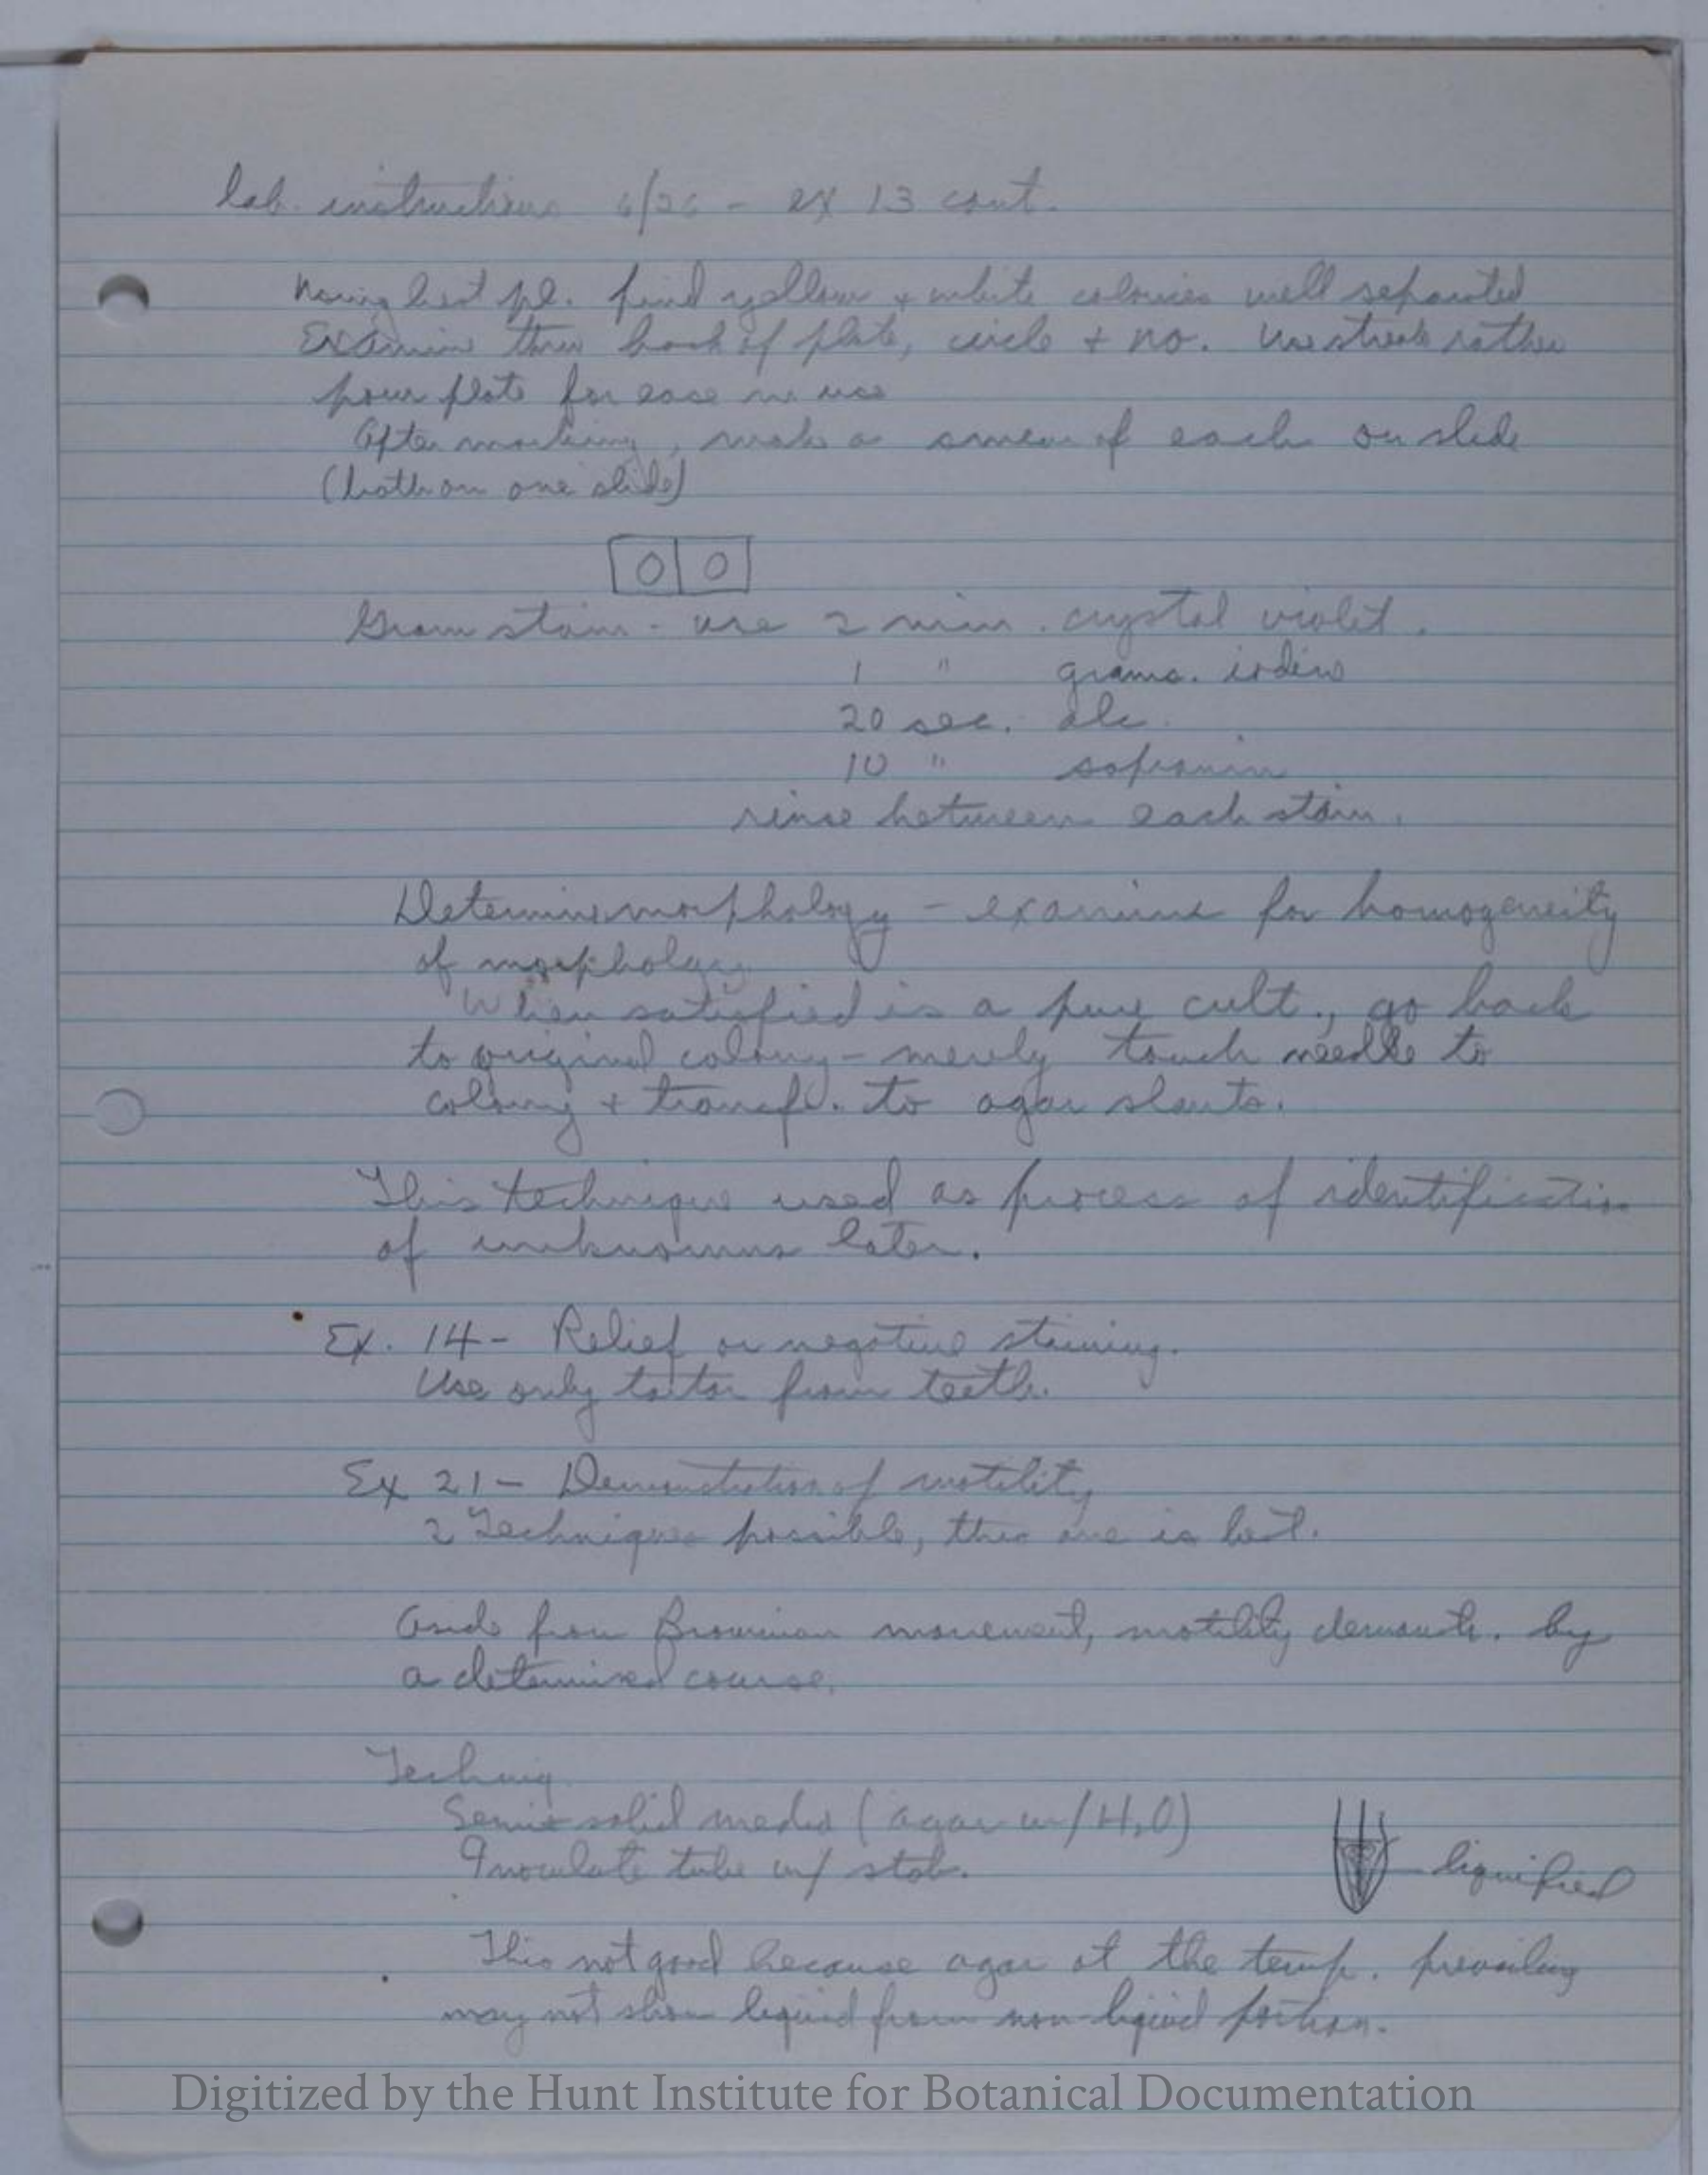 lab. instructions 6/26 - ex 13 cont.
Having best pl. find yellow + white colonies well separated
Examine thru back of plate, circle + no. Use streak rather
pour plate for ease in use
After marking, make a smear of each on slide
(both on one slide)
0 0
Gram stain - use 2 min. crystal violet.
1 " grams. iodine
20 sec. alc.
10 " safranin
rinse between each stain.
Determine morphology - examine for homogeneity
of morphology
When satisfied is a pure cult., go back
to original colony - merely touch needle to
colony + transf. to agar slants.
This technique used as process of identification
of unknowns later.
Ex. 14 - Relief or negative staining.
Use only tartar from teeth.
Ex 21 - Demonstration of motility
2 Techniques possible, this one is best.
Aside from Brownian movement, motility demonstr. by
a determined course.
Techniq.
Semi-solid media (agar w/ H2O)
Inoculate tube w/ stab.
liquified
This not good because agar at the temp. prevailing
may not show liquid from non-liquid portion.
Digitized by the Hunt Institute for Botanical Documentation